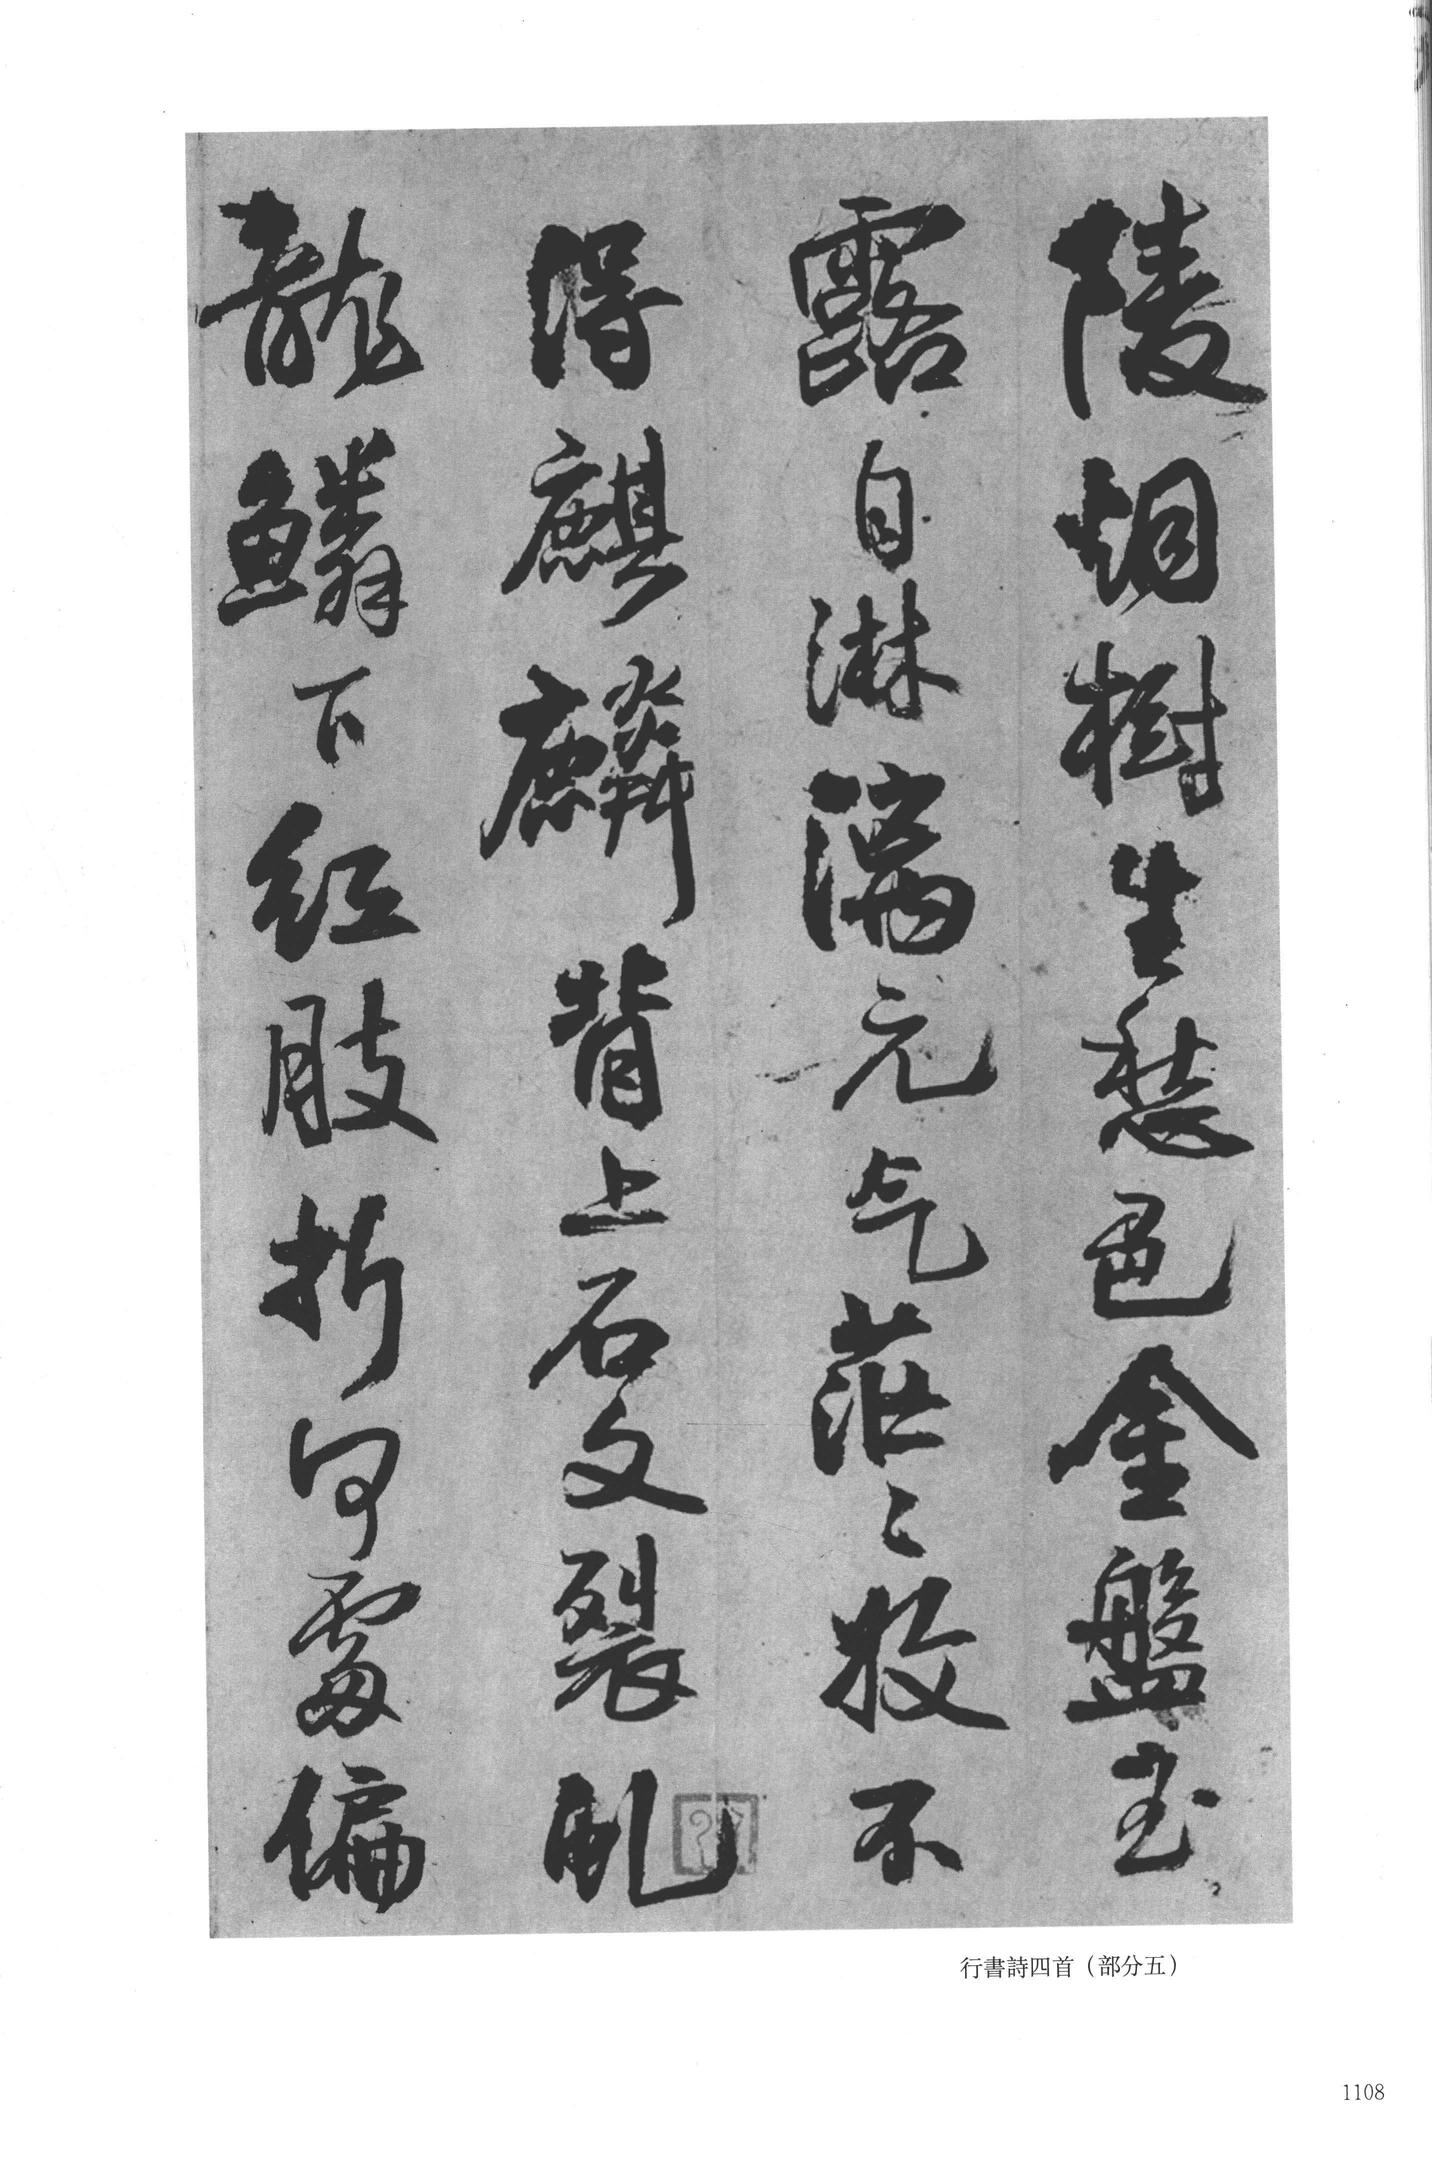 陵烟樹生愁色金盤玉
露自淋漓元气茫〻收不
得麒麟背上石文裂虬
龍鱗下紅肢折何處偏
行書詩四首（部分五）
1108